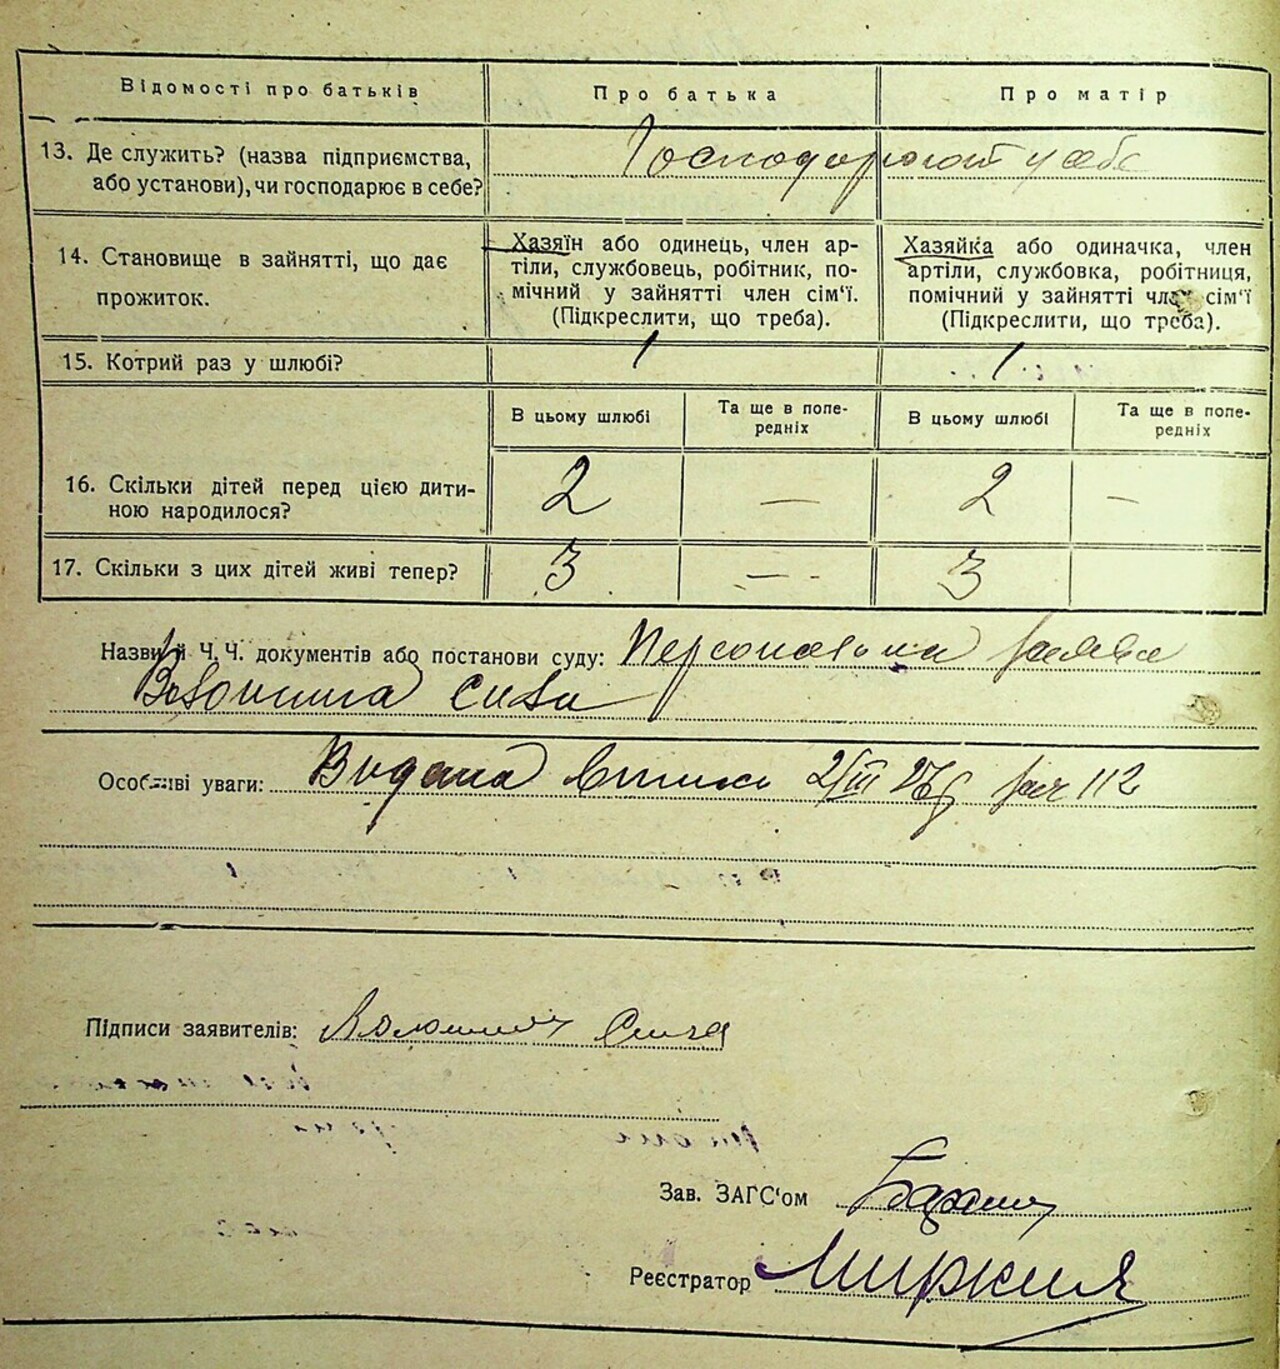 Відомості про батьків Про батька Про матір
13. Де служить? (назва підприємства, або установи), чи господарює в себе?
Господарюют у себе
14. Становище в зайнятті, що дає прожиток.
Хазяїн або одинець, член ар-
тіли, службовець, робітник, по-
мічний у зайнятті член сім‘ї.
(Підкреслити, що треба).
Хазяйка або одиначка, член
артіли, службовка, робітниця,
помічний у зайнятті член сім‘ї
(Підкреслити, що треба).
15. Котрий раз у шлюбі? 1 1
В цьому шлюбі Та ще в попе-
редніх В цьому шлюбі Та ще в попе-
редніх
16. Скільки дітей перед цією дити-
ною народилося? 2 — 2 —
17. Скільки з цих дітей живі тепер? 3 — 3
Назви й Ч. Ч. документів або постанови суду: Персональна заява
Особливі уваги: Видана 2/III 27 112
Підписи заявителів:
Зав. ЗАГС‘ом
Реєстратор Миркин